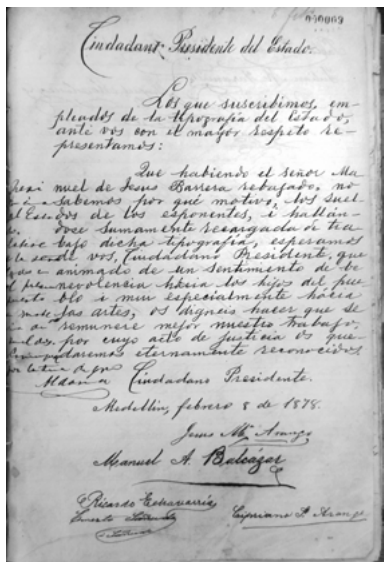 000009
6 folios
Ciudadano Presidente del Estado.
Los que suscribimos, em-
pleados de la tipografía del Estado,
ante vos con el mayor respeto re-
presentamos:
Que habiendo el señor Ma-
nuel de Jesus Barrera rebajado, no
sabemos por qué motivo, los suel-
dos de los esponentes, i hallán-
dose sumamente recargada de tra-
bajo dicha tipografía, esperamos
de vos, Ciudadano Presidente, que
animado de un sentimiento de be-
nevolencia hácia los hijos del pue-
blo i mui especialmente hácia
las artes, os digneis hacer que se
remunere mejor nuestro trabajo,
por cuyo acto de justicia os que-
daremos eternamente reconocidos.
Ciudadano Presidente.
Medellin, febrero 8 de 1878.
Jesus Ma. Arango
Manuel A. Balcázar
Ricardo Echavarría
Ernesto
Cipriano P. Arango